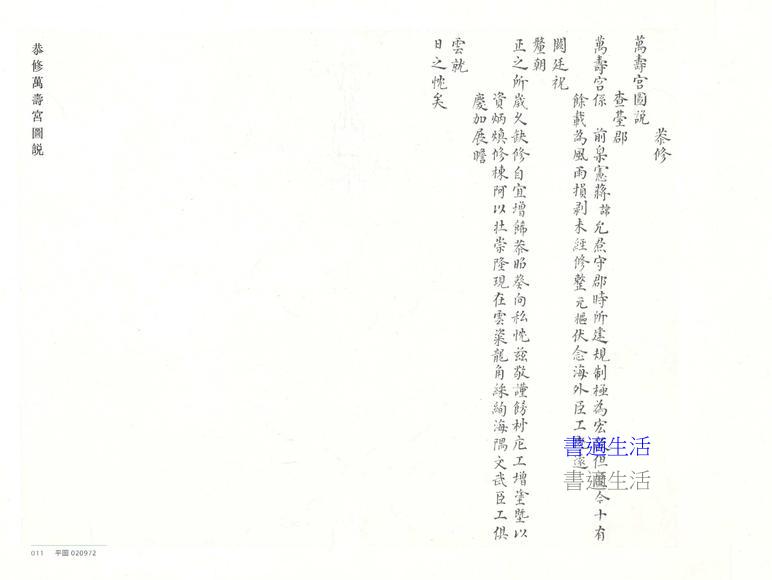 恭修
萬壽宮圖說
查臺郡
萬壽宮係　前臬憲蔣諱允焄守郡時所建規制極為宏　但　今十有
餘載為風雨損剥未經修整元樞伏念海外臣工　遠
闕廷祝
釐朝
正之所歲久缺修自宜增飾恭昭葵向私忱茲敬謹餝材庀工增塗塈以
資炳煥修棟阿以壯崇隆現在雲楶龍角綵絢海隅文武臣工俱
慶加展瞻
雲就
日之忱矣
恭修萬壽宮圖說
書適生活
書適生活
011 平圖 020972